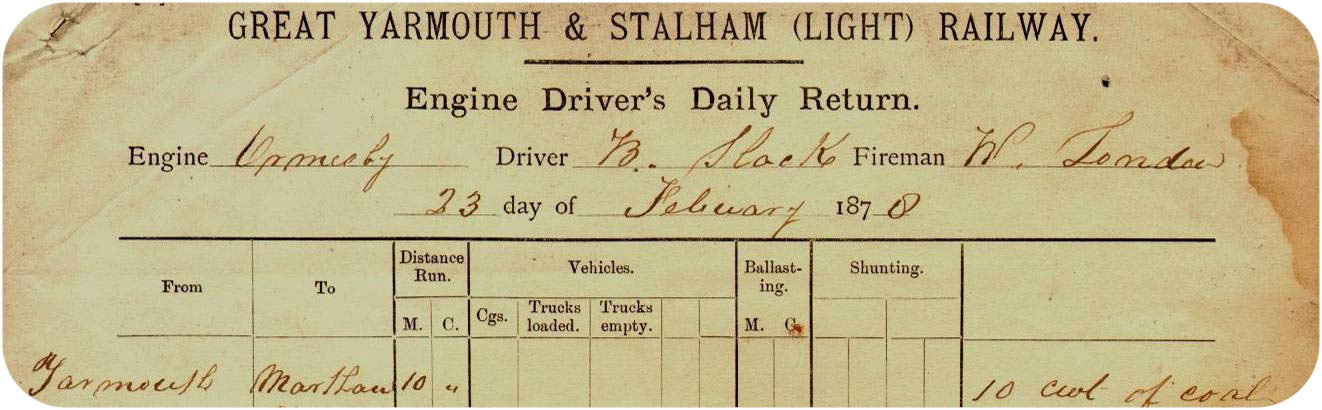 GREAT YARMOUTH & STALHAM (LIGHT) RAILWAY.
Engine Driver's Daily Return.
Engine Ormesby Driver B. Slack Fireman W.
23 day of February 1878
Distance Run. Vehicles. Ballast-ing. Shunting.
From To
M. C. Cgs. Trucks loaded. Trucks empty. M. C.
Yarmouth Martham 10 " 10 cwt of coal